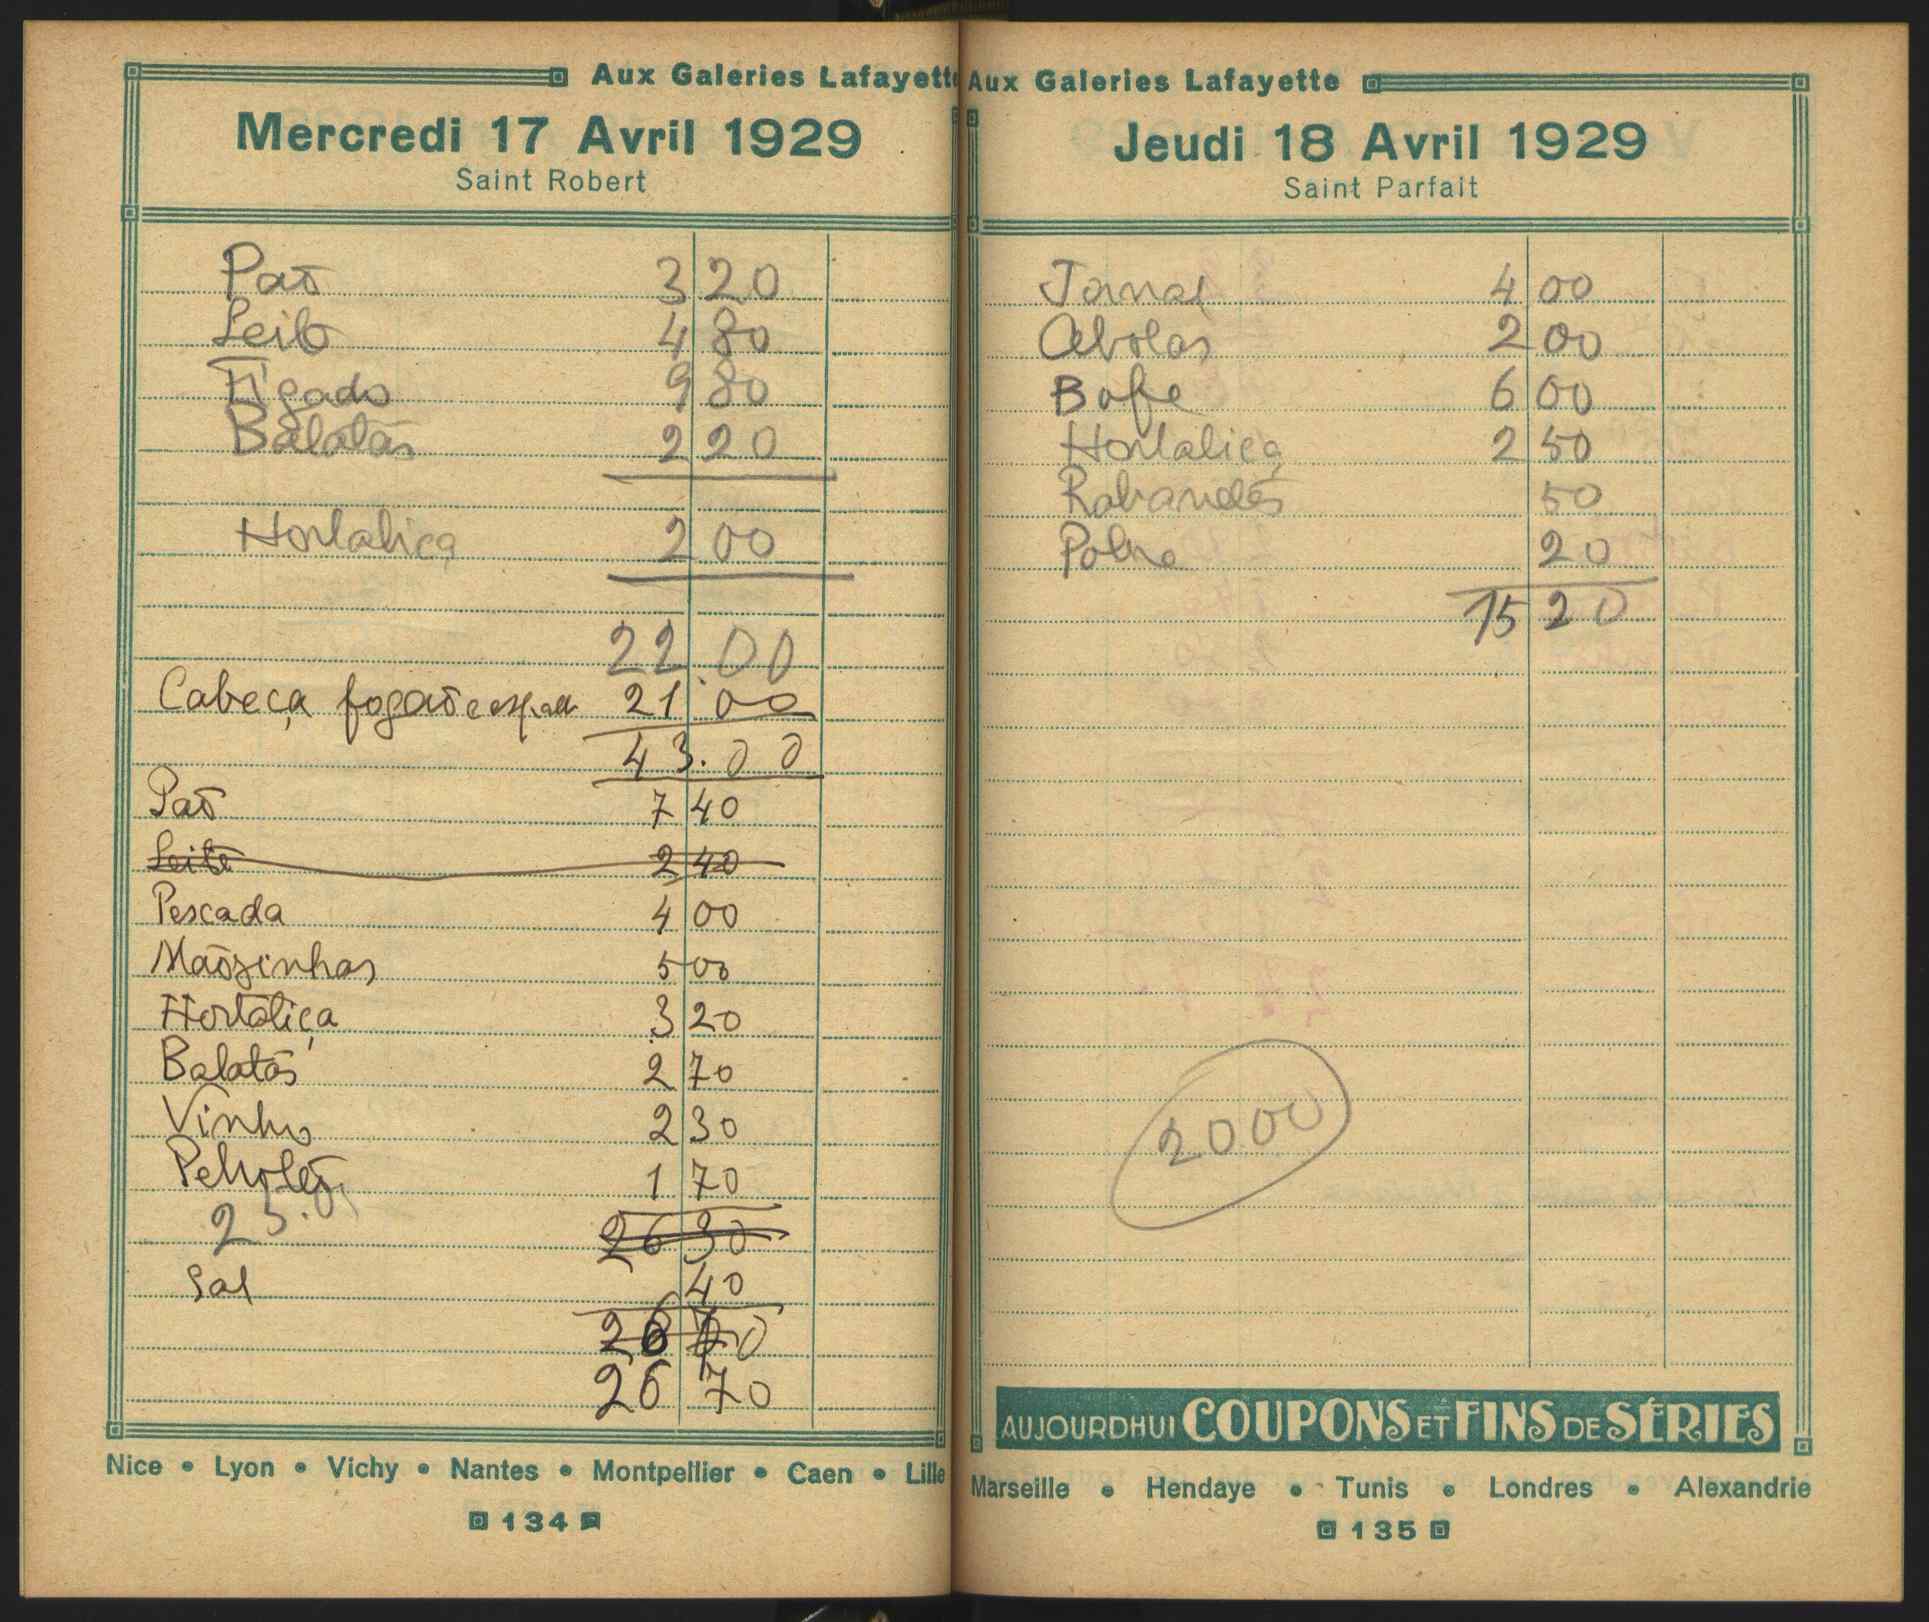 Aux Galeries Lafayette
Mercredi 17 Avril 1929
Saint Robert
Paõ 3 20
Leite 4 80
Figado 9 80
Batatas 2 20
Hortaliça 2 00
22.00
Cabeça fogaõ e 21.00
43.00
Paõ 7 40
Leite 2 40
Pescada 4 00
Maõsinhas 5 00
Hortaliça 3 20
Batatas 2 70
Vinho 2 30
Petroleo 1 70
26 30
Sal 40
26 70
Nice • Lyon • Vichy • Nantes • Montpellier • Caen • Lille
134
Aux Galeries Lafayette
Jeudi 18 Avril 1929
Saint Parfait
Jornal 4 00
Cebolas 2 00
Bofe 6 00
Hortaliça 2 50
50
Pobre 20
15 20
2000
AUJOURDHUI COUPONS ET FINS DE SÉRIES
Marseille • Hendaye • Tunis • Londres • Alexandrie
135